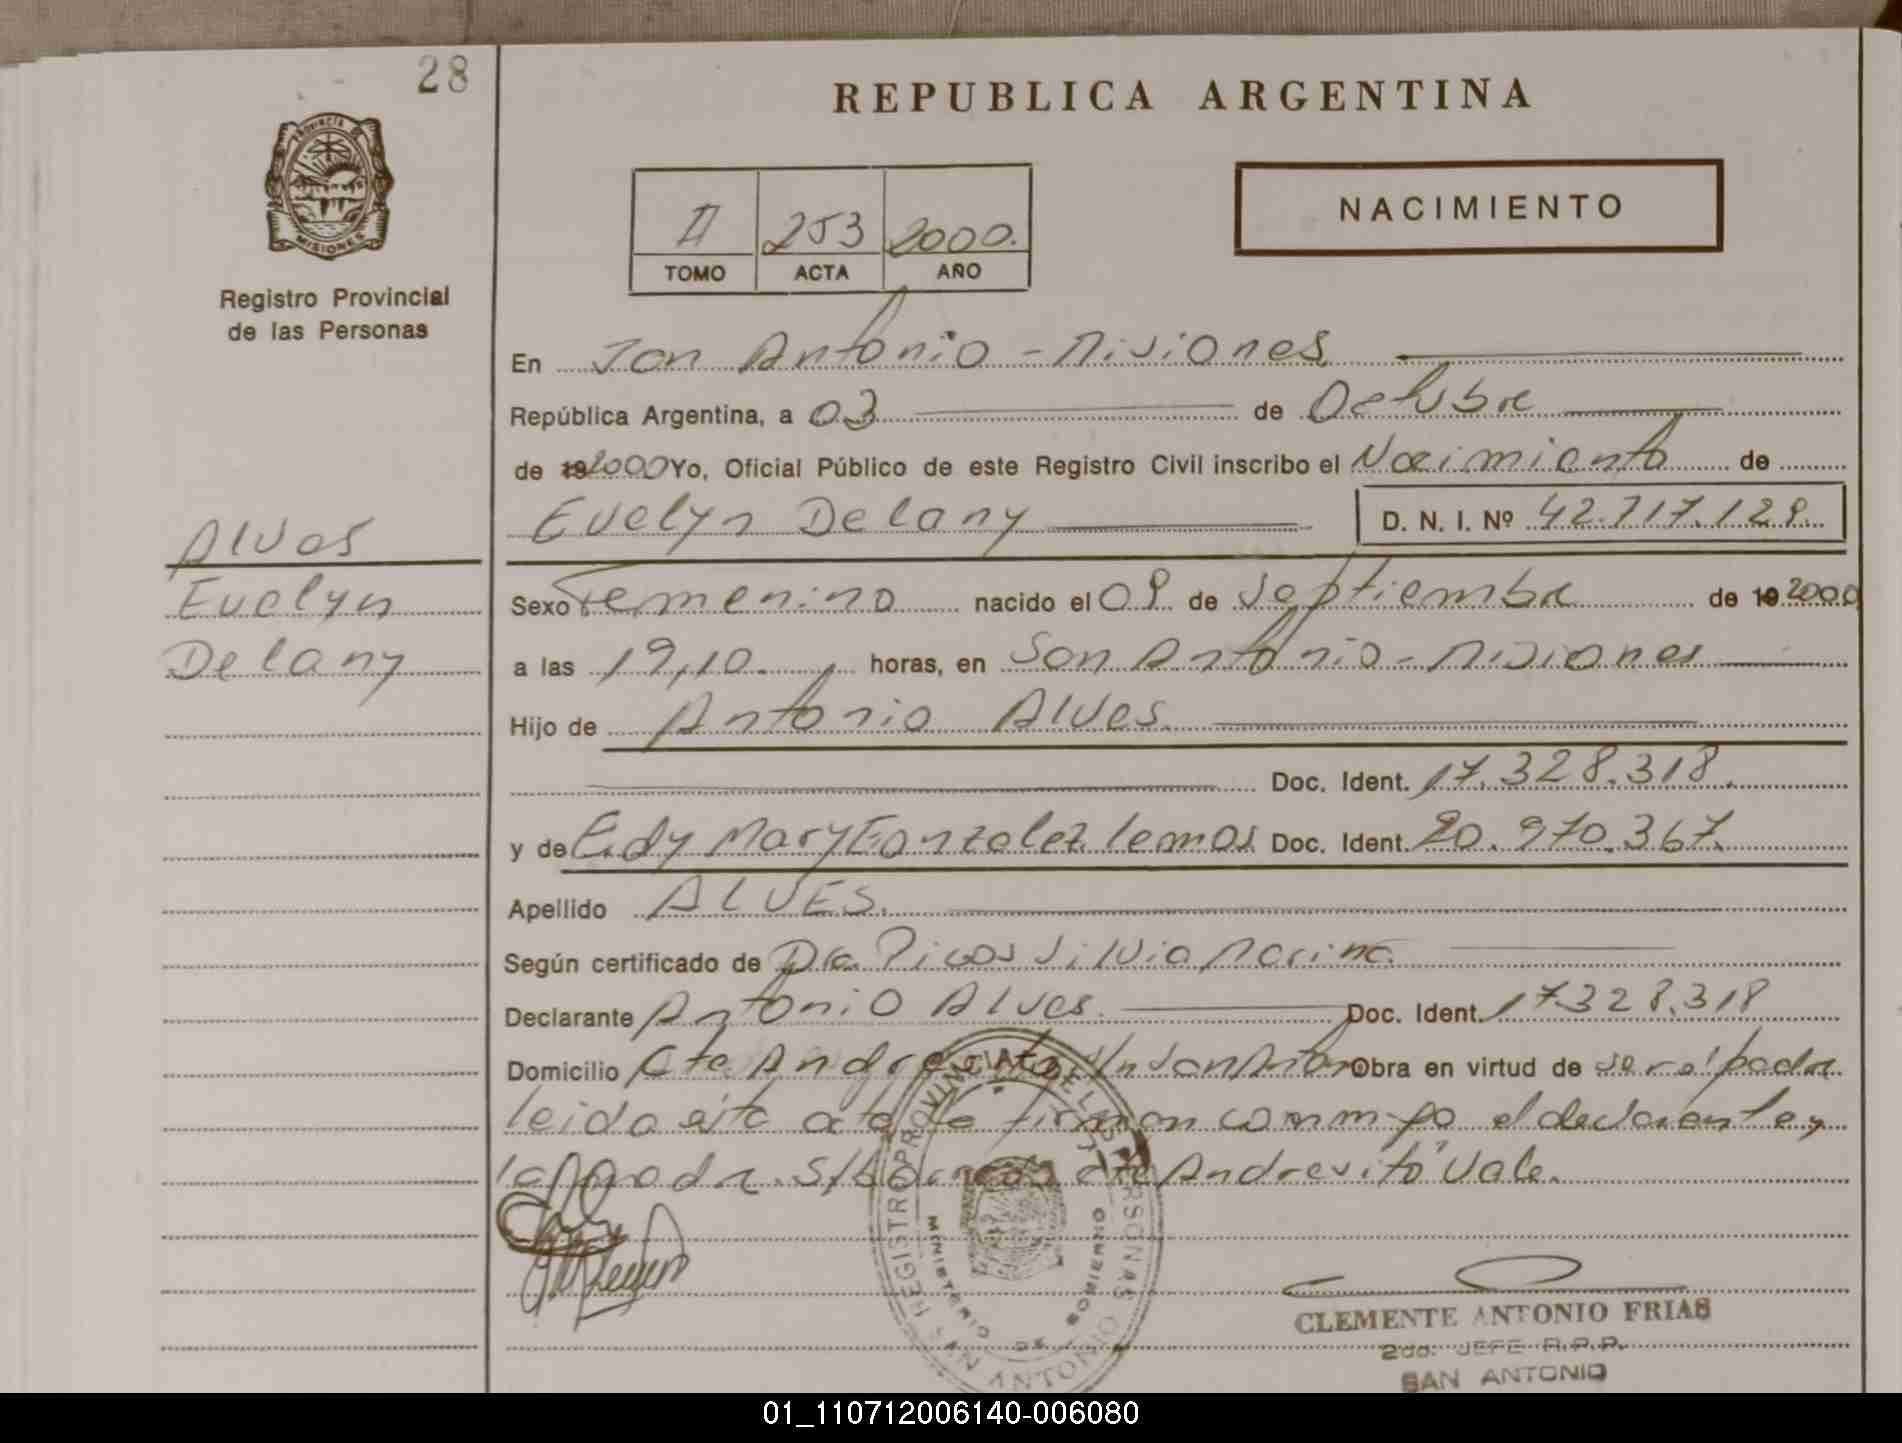 28
REPUBLICA ARGENTINA
PROVINCIA DE
MISIONES
Registro Provincial
de las Personas
II 253 2000.
TOMO ACTA AÑO
NACIMIENTO
En San Antonio - Misiones
República Argentina, a 03 de Octubre
de 19 2000 Yo, Oficial Público de este Registro Civil inscribo el Nacimiento de
Evelyn Delany D. N. I. Nº 42.717.129.
Alves
Evelyn
Delany
Sexo Femenino nacido el 09 de Septiembre de 19 2000
a las 19,10 horas, en San Antonio - Misiones
Hijo de Antonio Alves.
Doc. Ident. 17.328.318.
y de Edy Mary Gonzalez lemos Doc. Ident. 20.970.367.
Apellido ALVES.
Según certificado de Dra. Picos Silvia Marina
Declarante Antonio Alves. Doc. Ident. 17.328.318
Domicilio Cte Andresito Obra en virtud de ser el padre
leida esta acta la firman conmigo el declarante y
la madre. Andresito Vale.
REGISTRO PROVINCIAL DE LAS PERSONAS
MINISTERIO DE GOBIERNO
SAN ANTONIO
CLEMENTE ANTONIO FRIAS
2do. JEFE R.P.P.
SAN ANTONIO
01_110712006140-006080